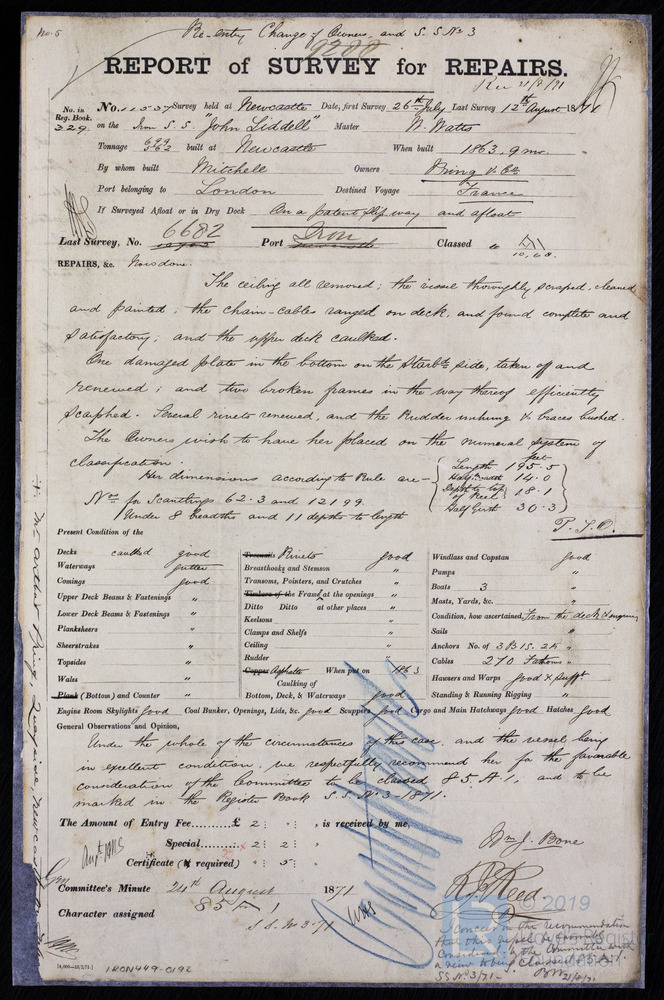 No. 5
Re-entry Change of Owners, and S.S. No 3
9200
REPORT of SURVEY for REPAIRS.
Rec 21/8/71
No. in Reg. Book. 329
No. 11557 Survey held at Newcastle Date, first Survey 26th July Last Survey 12th August 1871
on the Iron S.S. "John Liddell" Master W. Watts
Tonnage 699 362 built at Newcastle When built 1863. 9 mo.
By whom built Mitchell Owners Bring & Co
Port belonging to London Destined Voyage France
If Surveyed Afloat or in Dry Dock On a patent slip way and afloat
6682
Last Survey, No. Port Iron Classed " A1
10, 68.
REPAIRS, &c. Now done.
The ceiling all removed; the vessel thoroughly scraped, cleaned
and painted; the chain-cables ranged on deck, and found complete and
satisfactory; and the upper deck caulked.
One damaged plate in the bottom on the Starbd side, taken off and
renewed; and two broken frames in the way thereof efficiently
scarphed. Several rivets renewed, and the Rudder unhung & braces bushed.
The Owners wish to have her placed on the numeral system of
classification.
feet
Her dimensions according to Rule are -
Length 195.5
Half Breadth 14.0
Depth to top of Keel 18.1
Half Girth 30.3
Nos for Scantlings 62.3 and 12199
Under 8 breadths and 11 depths to length
P.T.O.
Present Condition of the
Decks caulked good
Waterways gutter "
Comings good
Upper Deck Beams & Fastenings "
Lower Deck Beams & Fastenings "
Planksheers "
Sheerstrakes "
Topsides "
Wales "
Plank (Bottom) and Counter "
Treenails Rivets good
Breasthooks and Stemson "
Transoms, Pointers, and Crutches "
Timbers of the Frame at the openings "
Ditto Ditto at other places "
Keelsons "
Clamps and Shelfs "
Ceiling "
Rudder "
Copper Asphalte When put on 1863
Caulking of
Bottom, Deck, & Waterways good
Windlass and Capstan good
Pumps "
Boats 3 "
Masts, Yards, &c. "
Condition, how ascertained, From the deck & enquiry
Sails "
Anchors No. of 3 B 1 S. 2 K "
Cables 270 Fathoms "
Hausers and Warps good & sufft
Standing & Running Rigging "
Engine Room Skylights good Coal Bunker, Openings, Lids, &c. good Scuppers good Cargo and Main Hatchways good Hatches good
General Observations and Opinion,
Under the whole of the circumstances of this case, and the vessel being
in excellent condition, we respectfully recommend her for the favorable
consideration of the Committee to be classed 85. A. 1, and to be
marked in the Register Book S.S. No 3-1871.
The Amount of Entry Fee......... £ 2 : " : " is received by me,
Special......... 2 : 2 : "
Certificate (if required) " : 5 : "
Wm. J. Bone
Committee's Minute 24th August 1871
Character assigned 85 A 1
S.S. No 3-71
I concur in the recommendation
that this vessel be favorably
considered by the Committee with
a view to being classed 85 A. 1.
SS No 3/71-
21/8/71
[4,000—13/2/71.]
IRON449-0192
© 2019